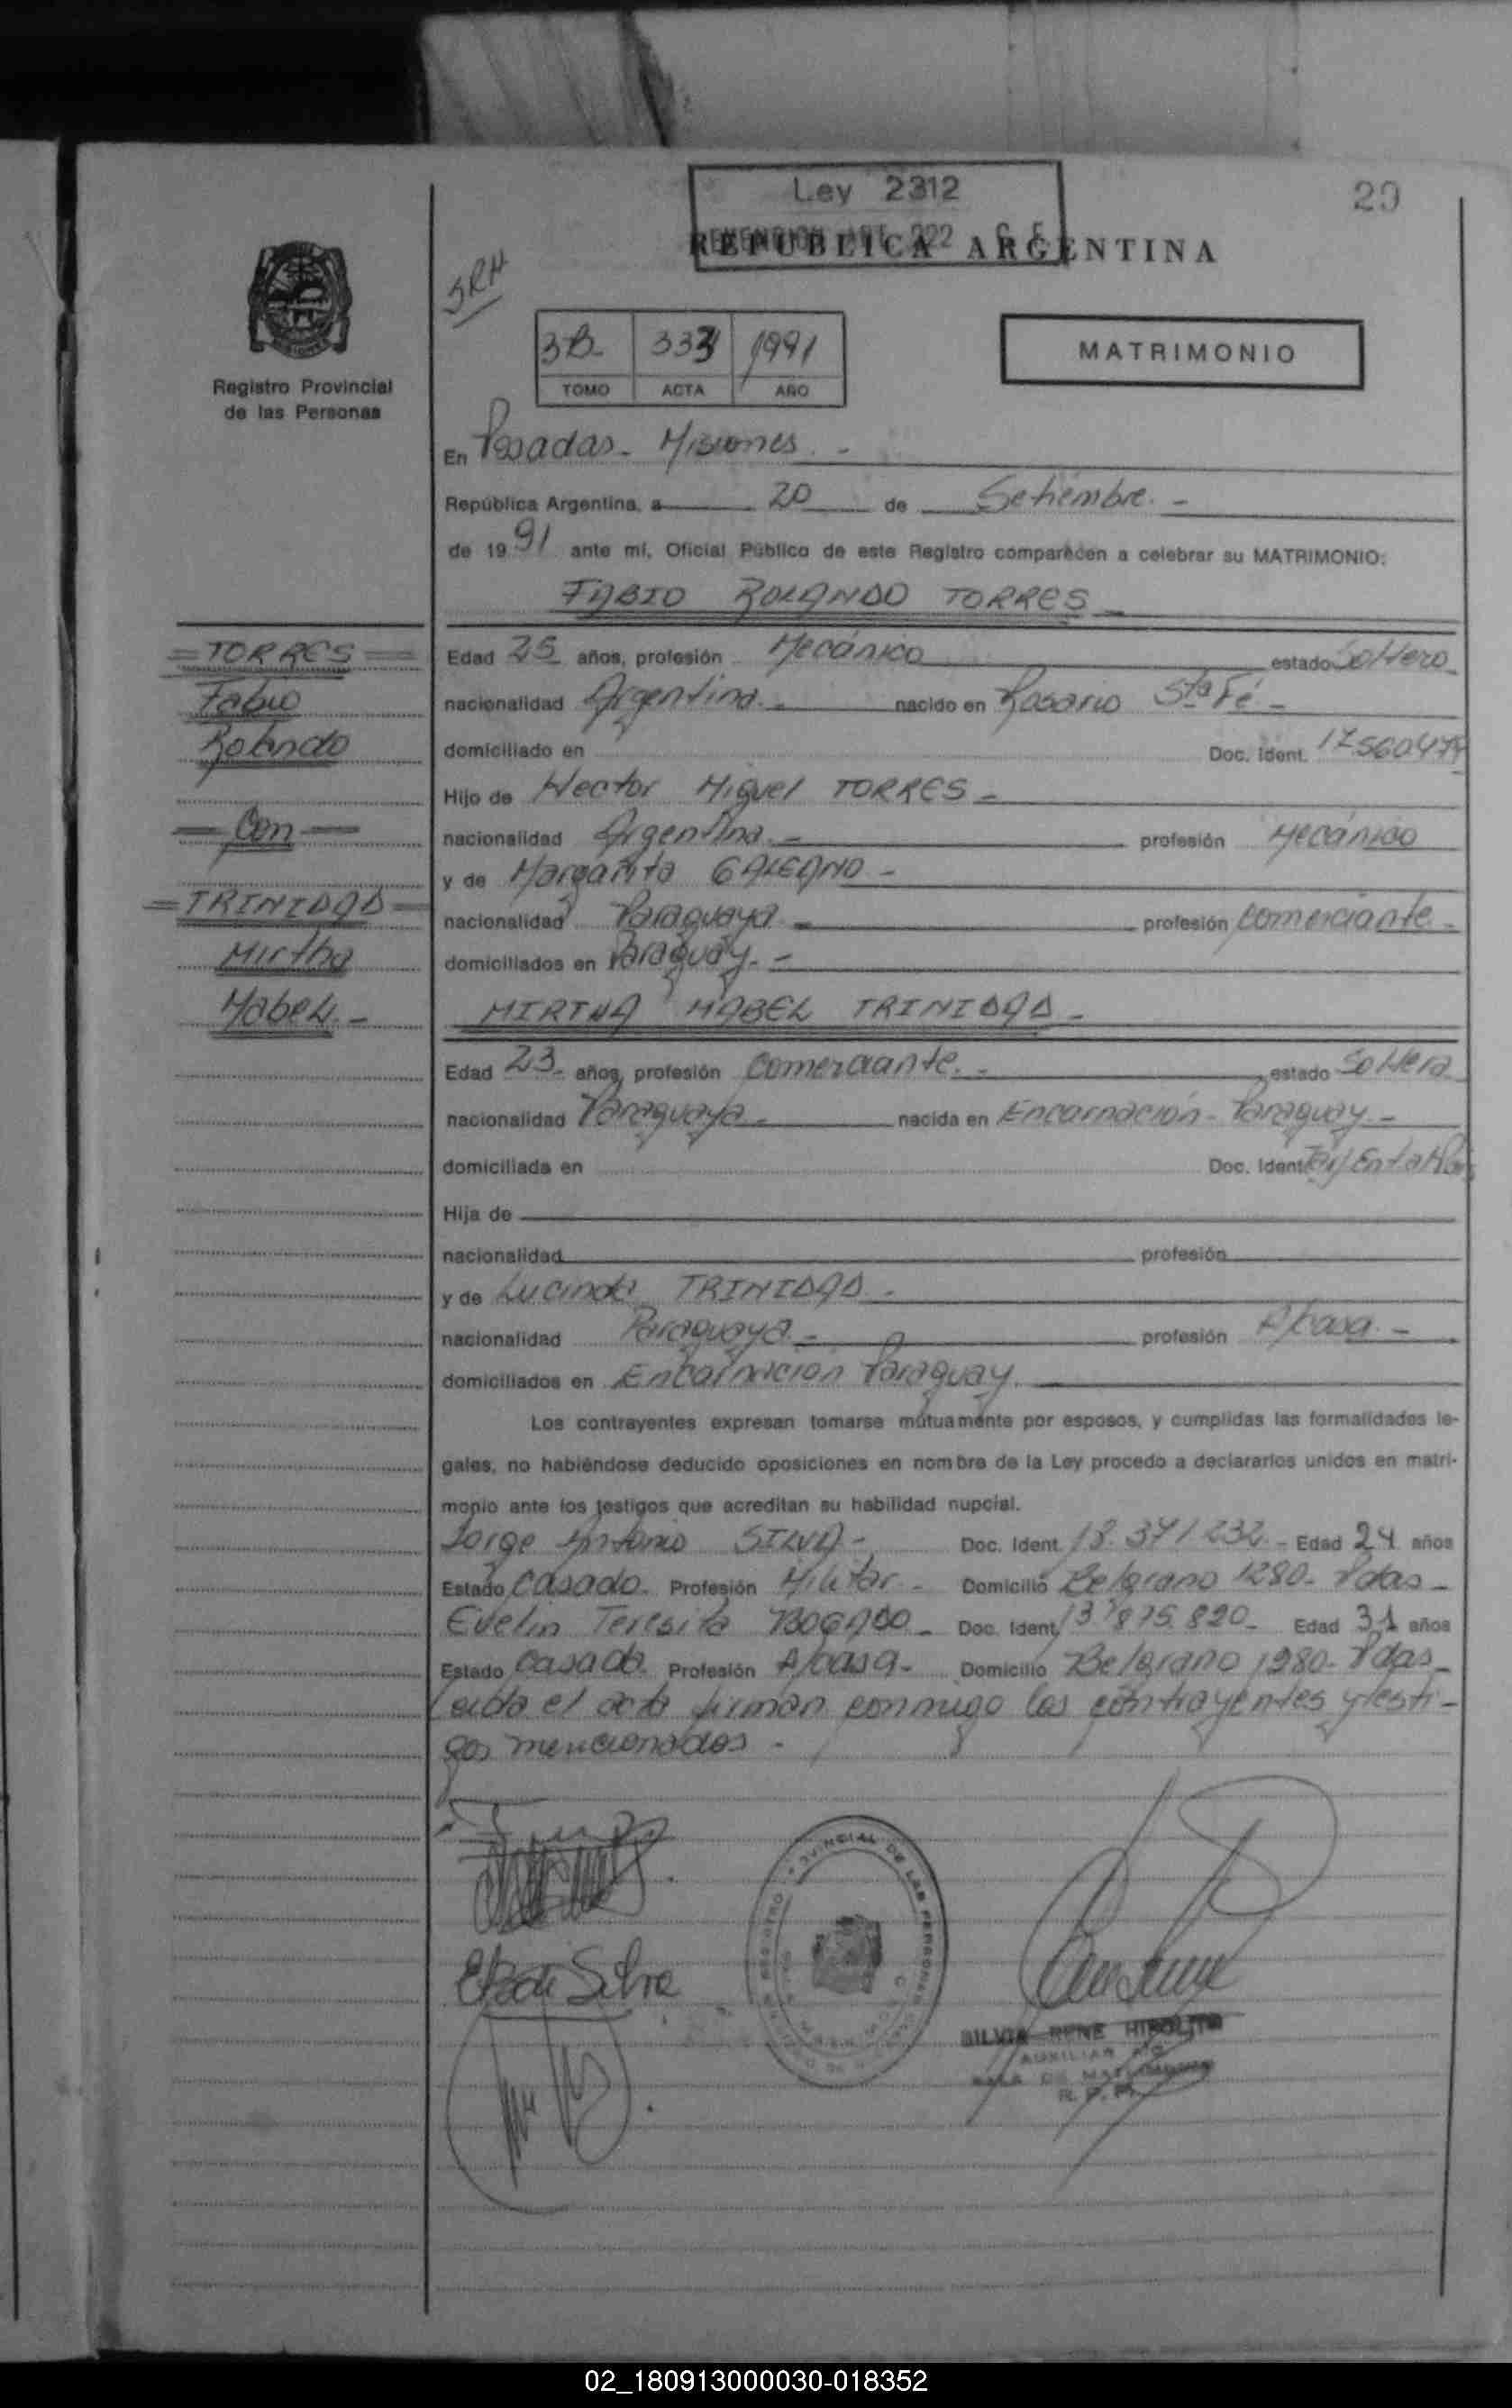 Ley 2312
20
REPUBLICA ARGENTINA
SRH
Registro Provincial
de las Personas
3B- 333 1991
TOMO ACTA AÑO
MATRIMONIO
En Posadas - Misiones. -
República Argentina, a 20 de Setiembre. -
de 1991 ante mí, Oficial Público de este Registro comparecen a celebrar su MATRIMONIO:
FABIO ROLANDO TORRES -
= TORRES =
Fabio
Rolando
= Con =
= TRINIDAD =
Mirtha
Mabel. -
Edad 25 años, profesión Mecánico estado Soltero
nacionalidad Argentina. - nacido en Rosario Sta Fé -
domiciliado en Doc. Ident. 17560474
Hijo de Hector Miguel TORRES -
nacionalidad Argentina. - profesión Mecánico
y de Margarita GALEANO -
nacionalidad Paraguaya - profesión Comerciante -
domiciliados en Paraguay. -
MIRTHA MABEL TRINIDAD -
Edad 23- años, profesión Comerciante. - estado Soltera
nacionalidad Paraguaya - nacida en Encarnación - Paraguay. -
domiciliada en Doc. Ident.
Hija de
nacionalidad profesión
y de Lucinda TRINIDAD -
nacionalidad Paraguaya - profesión A/casa -
domiciliados en Encarnación Paraguay.
Los contrayentes expresan tomarse mútuamente por esposos, y cumplidas las formalidades le-
gales, no habiéndose deducido oposiciones en nombre de la Ley procedo a declararlos unidos en matri-
monio ante los testigos que acreditan su habilidad nupcial.
Jorge Antonio SILVA - Doc. Ident. 18.371232 - Edad 24 años
Estado Casado. Profesión Militar - Domicilio Belgrano 1280 - Pdas -
Evelin Teresita BOGADO - Doc. Ident. 13.875.820 - Edad 31 años
Estado Casada. Profesión A/casa - Domicilio Belgrano 1280 - Pdas -
Leida el acta firman conmigo los contrayentes y testi-
gos mencionados -
de Silva
SILVIA RENE HIPOLITO
AUXILIAR
SALA DE MATRIMONIOS
R. P. P.
02_180913000030-018352